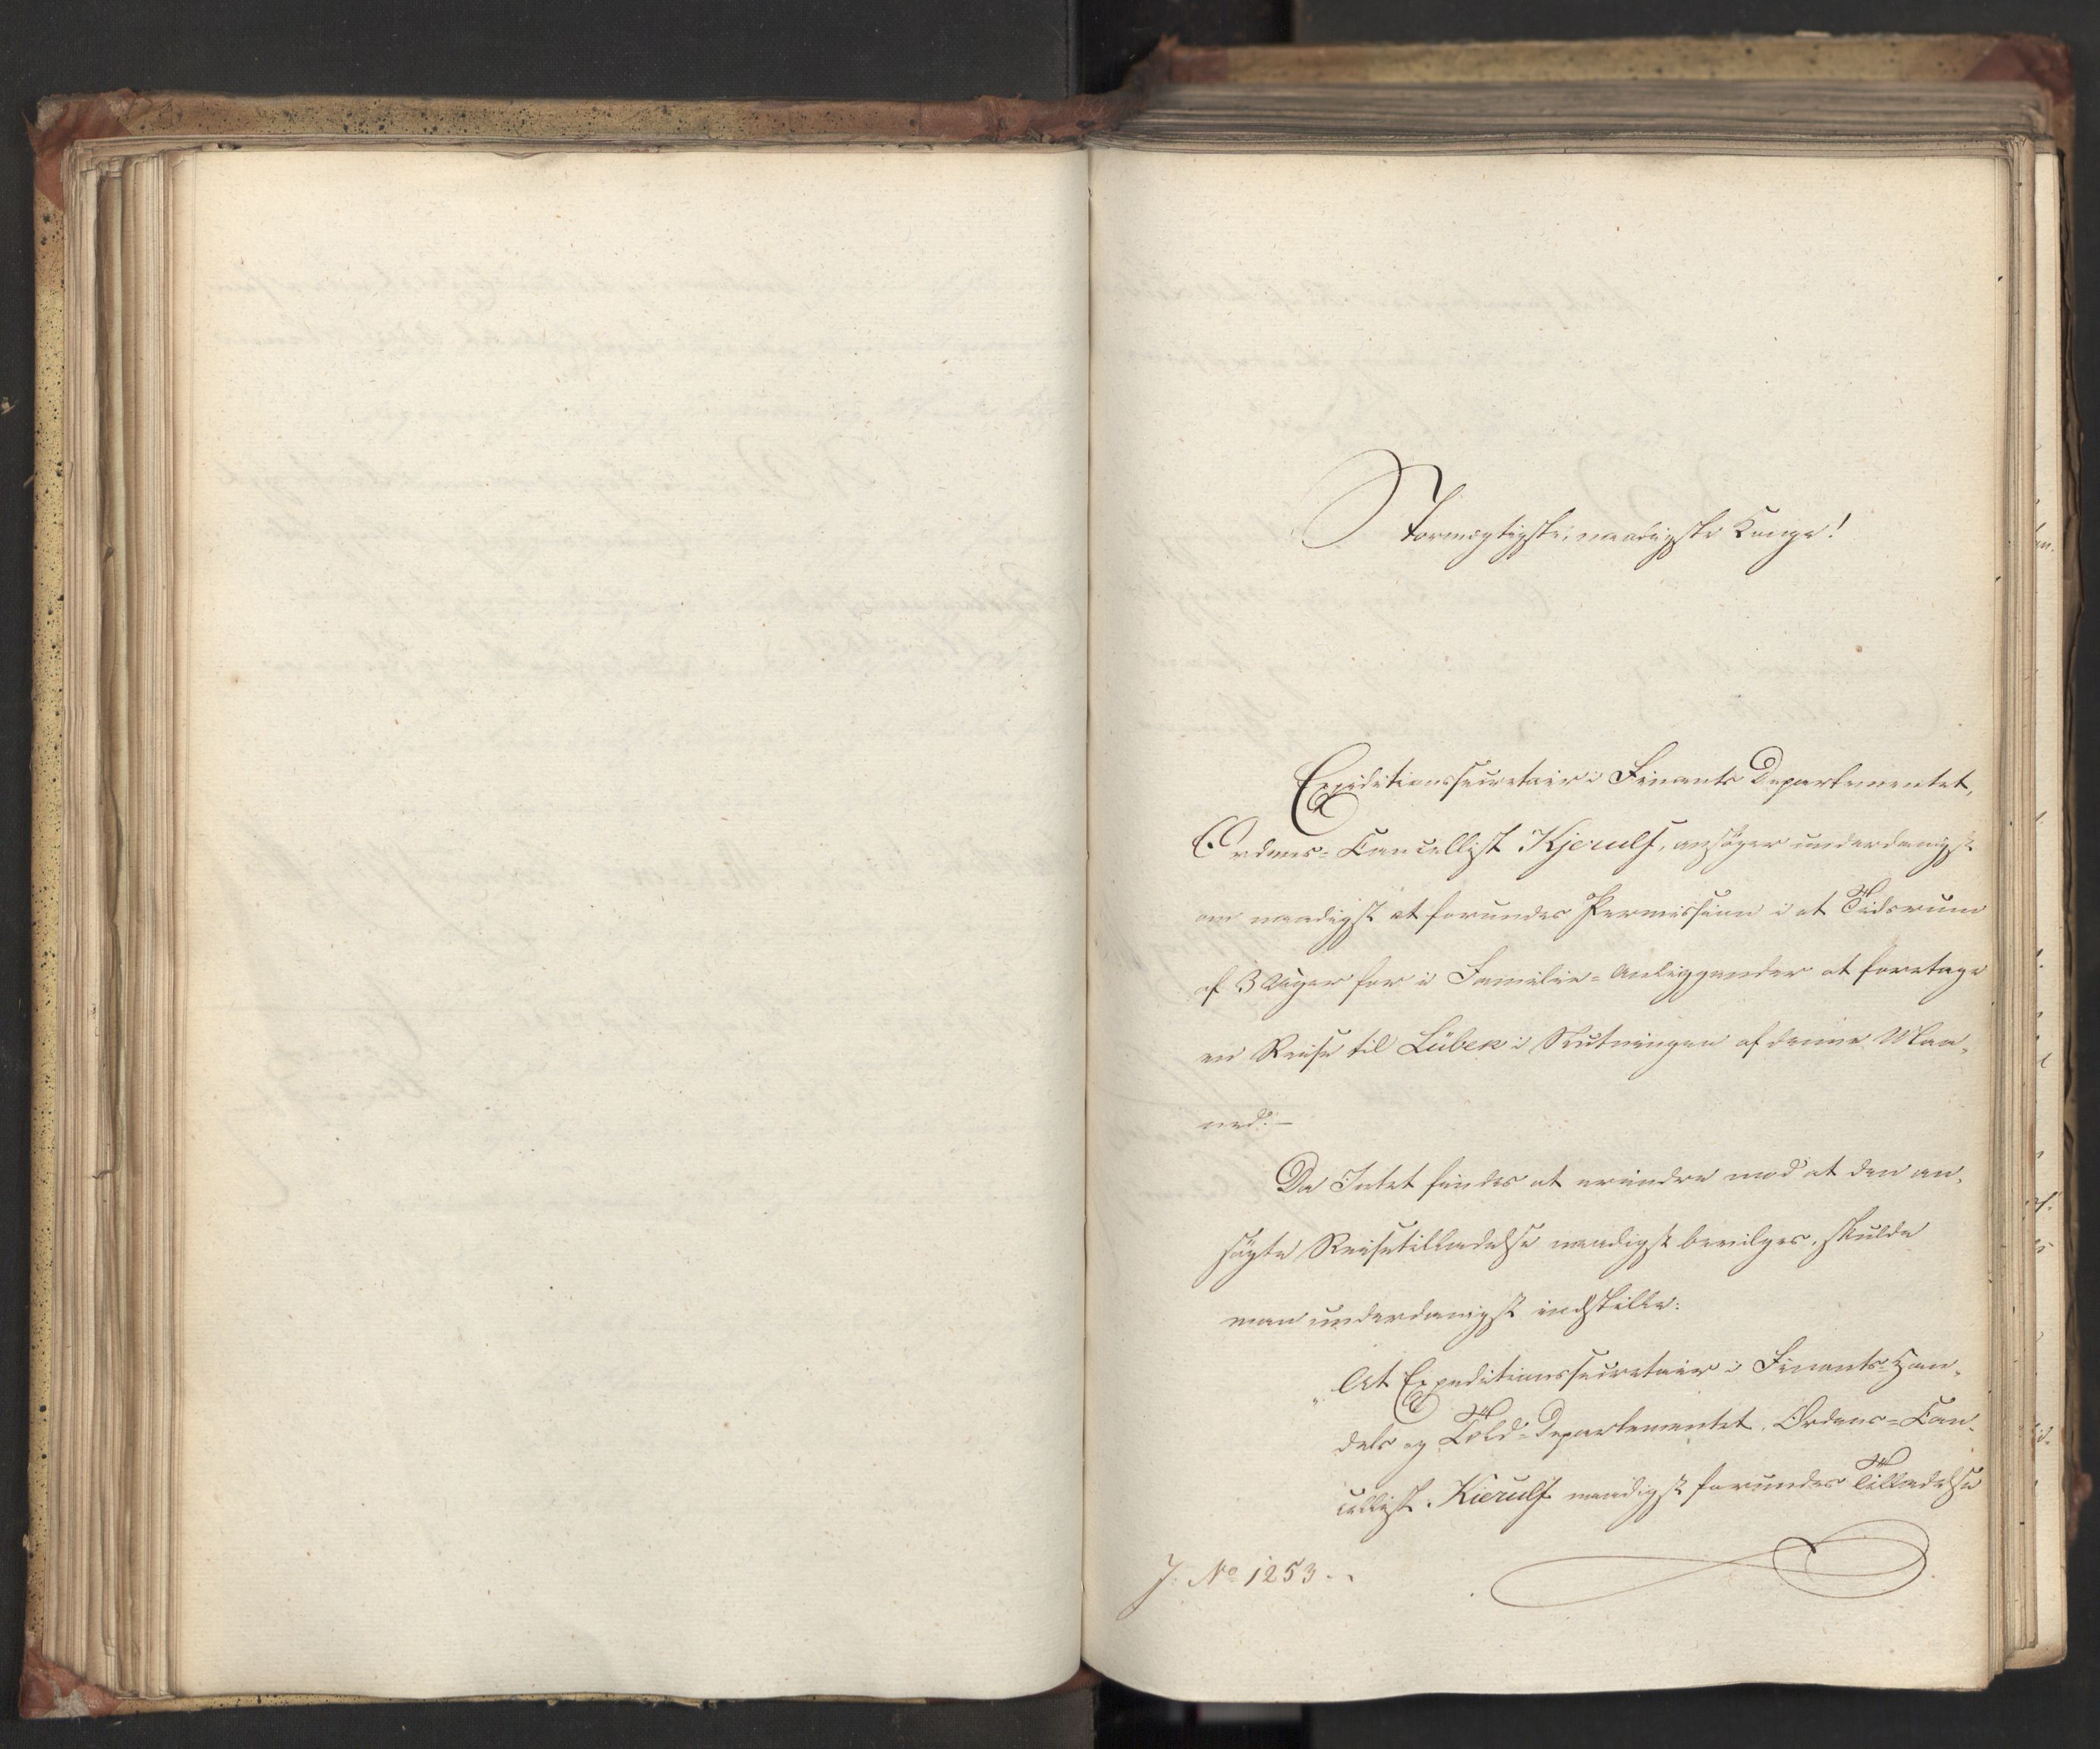 Stormægtigste, naadigste Konge!
Expeditionssecretair i Finants Departementet,
Ordens-Cancellist Kjerulf, ansøger underdanigst
om naadigst at forundes Permission i et Tidsrum
af 3 Uger for i Familie-Anliggender at foretage
en Reise til Lübek i Slutningen af denne Maa-
ned.-
Da Intet findes at erindre mod at den an-
søgte Reisetilladelse naadigst bevilges, skulde
man underdanigst indstille:
"At Expeditionssecretair i Finants- Han-
dels og Told-Departementet, Ordens-Can-
cellist Kierulf naadigst forundes Tilladelse
J. No 1253.